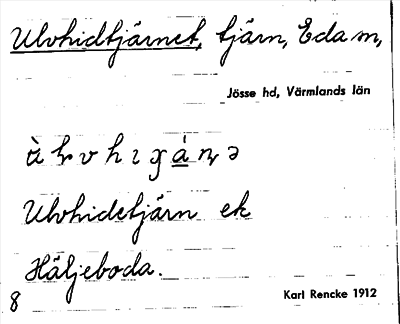 Ulvhidtjärnet, tjärn, Eda sn,
Jösse hd, Värmlands län
Ulvhidetjärn ek
Häljeboda.
8
Karl Rencke 1912